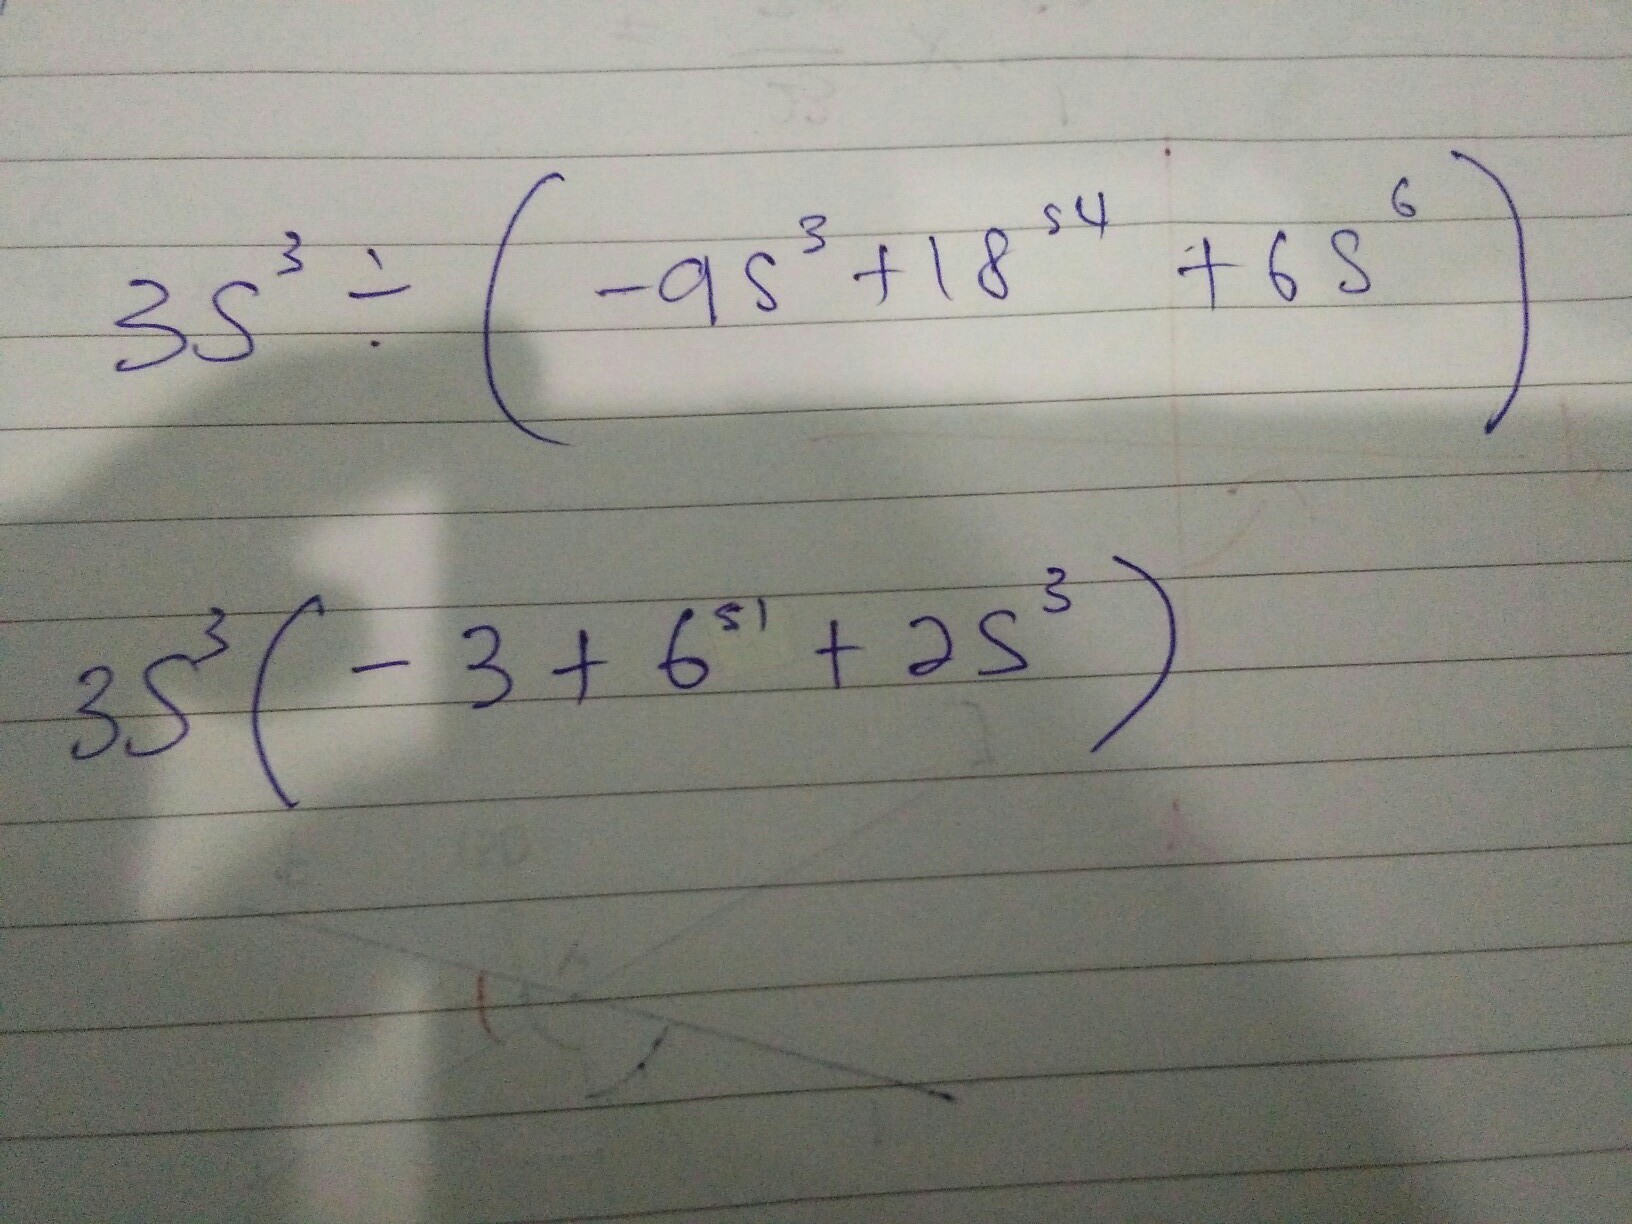 3S³ ÷ (-9s³ + 18^{s4} + 6s⁶)
3S³ (-3 + 6^{s1} + 2s³)